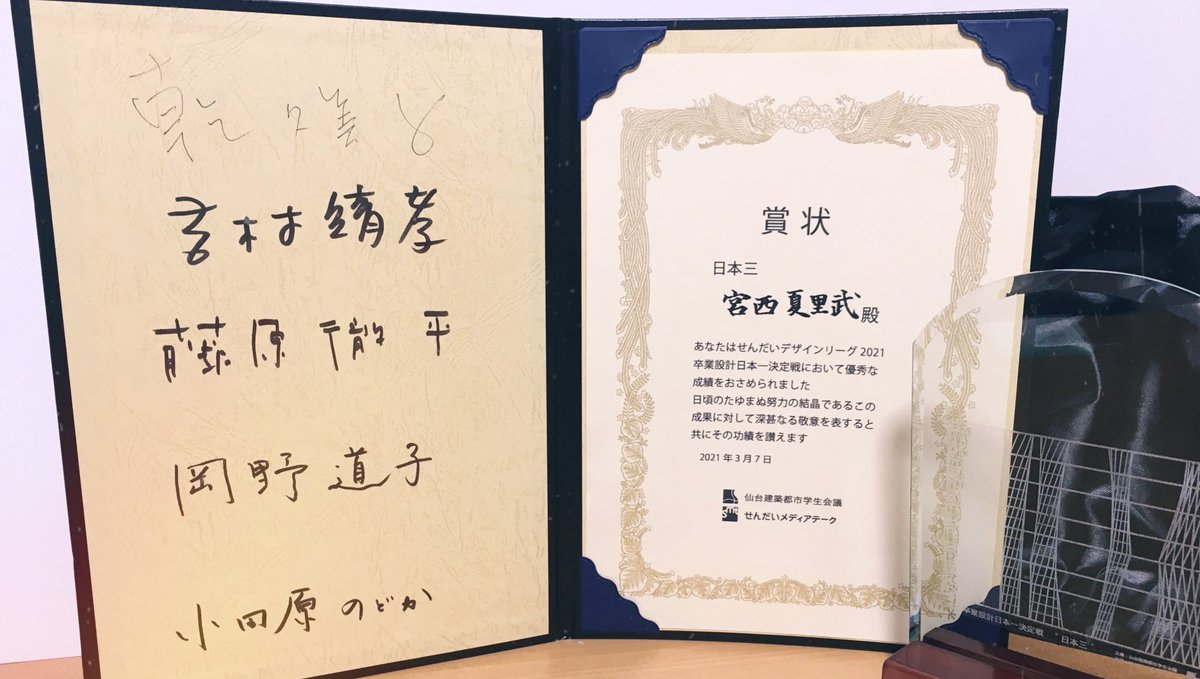 乾久美子
吉村靖孝
藤原徹平
岡野道子
小田原のどか
賞状
日本三
宮西夏里武殿
あなたはせんだいデザインリーグ2021
卒業設計日本一決定戦において優秀な
成績をおさめられました
日頃のたゆまぬ努力の結晶であるこの
成果に対して深甚なる敬意を表すると
共にその功績を讃えます
2021年3月7日
仙台建築都市学生会議
smt
せんだいメディアテーク
卒業設計日本一決定戦 "日本三"
主催:仙台建築都市学生会議